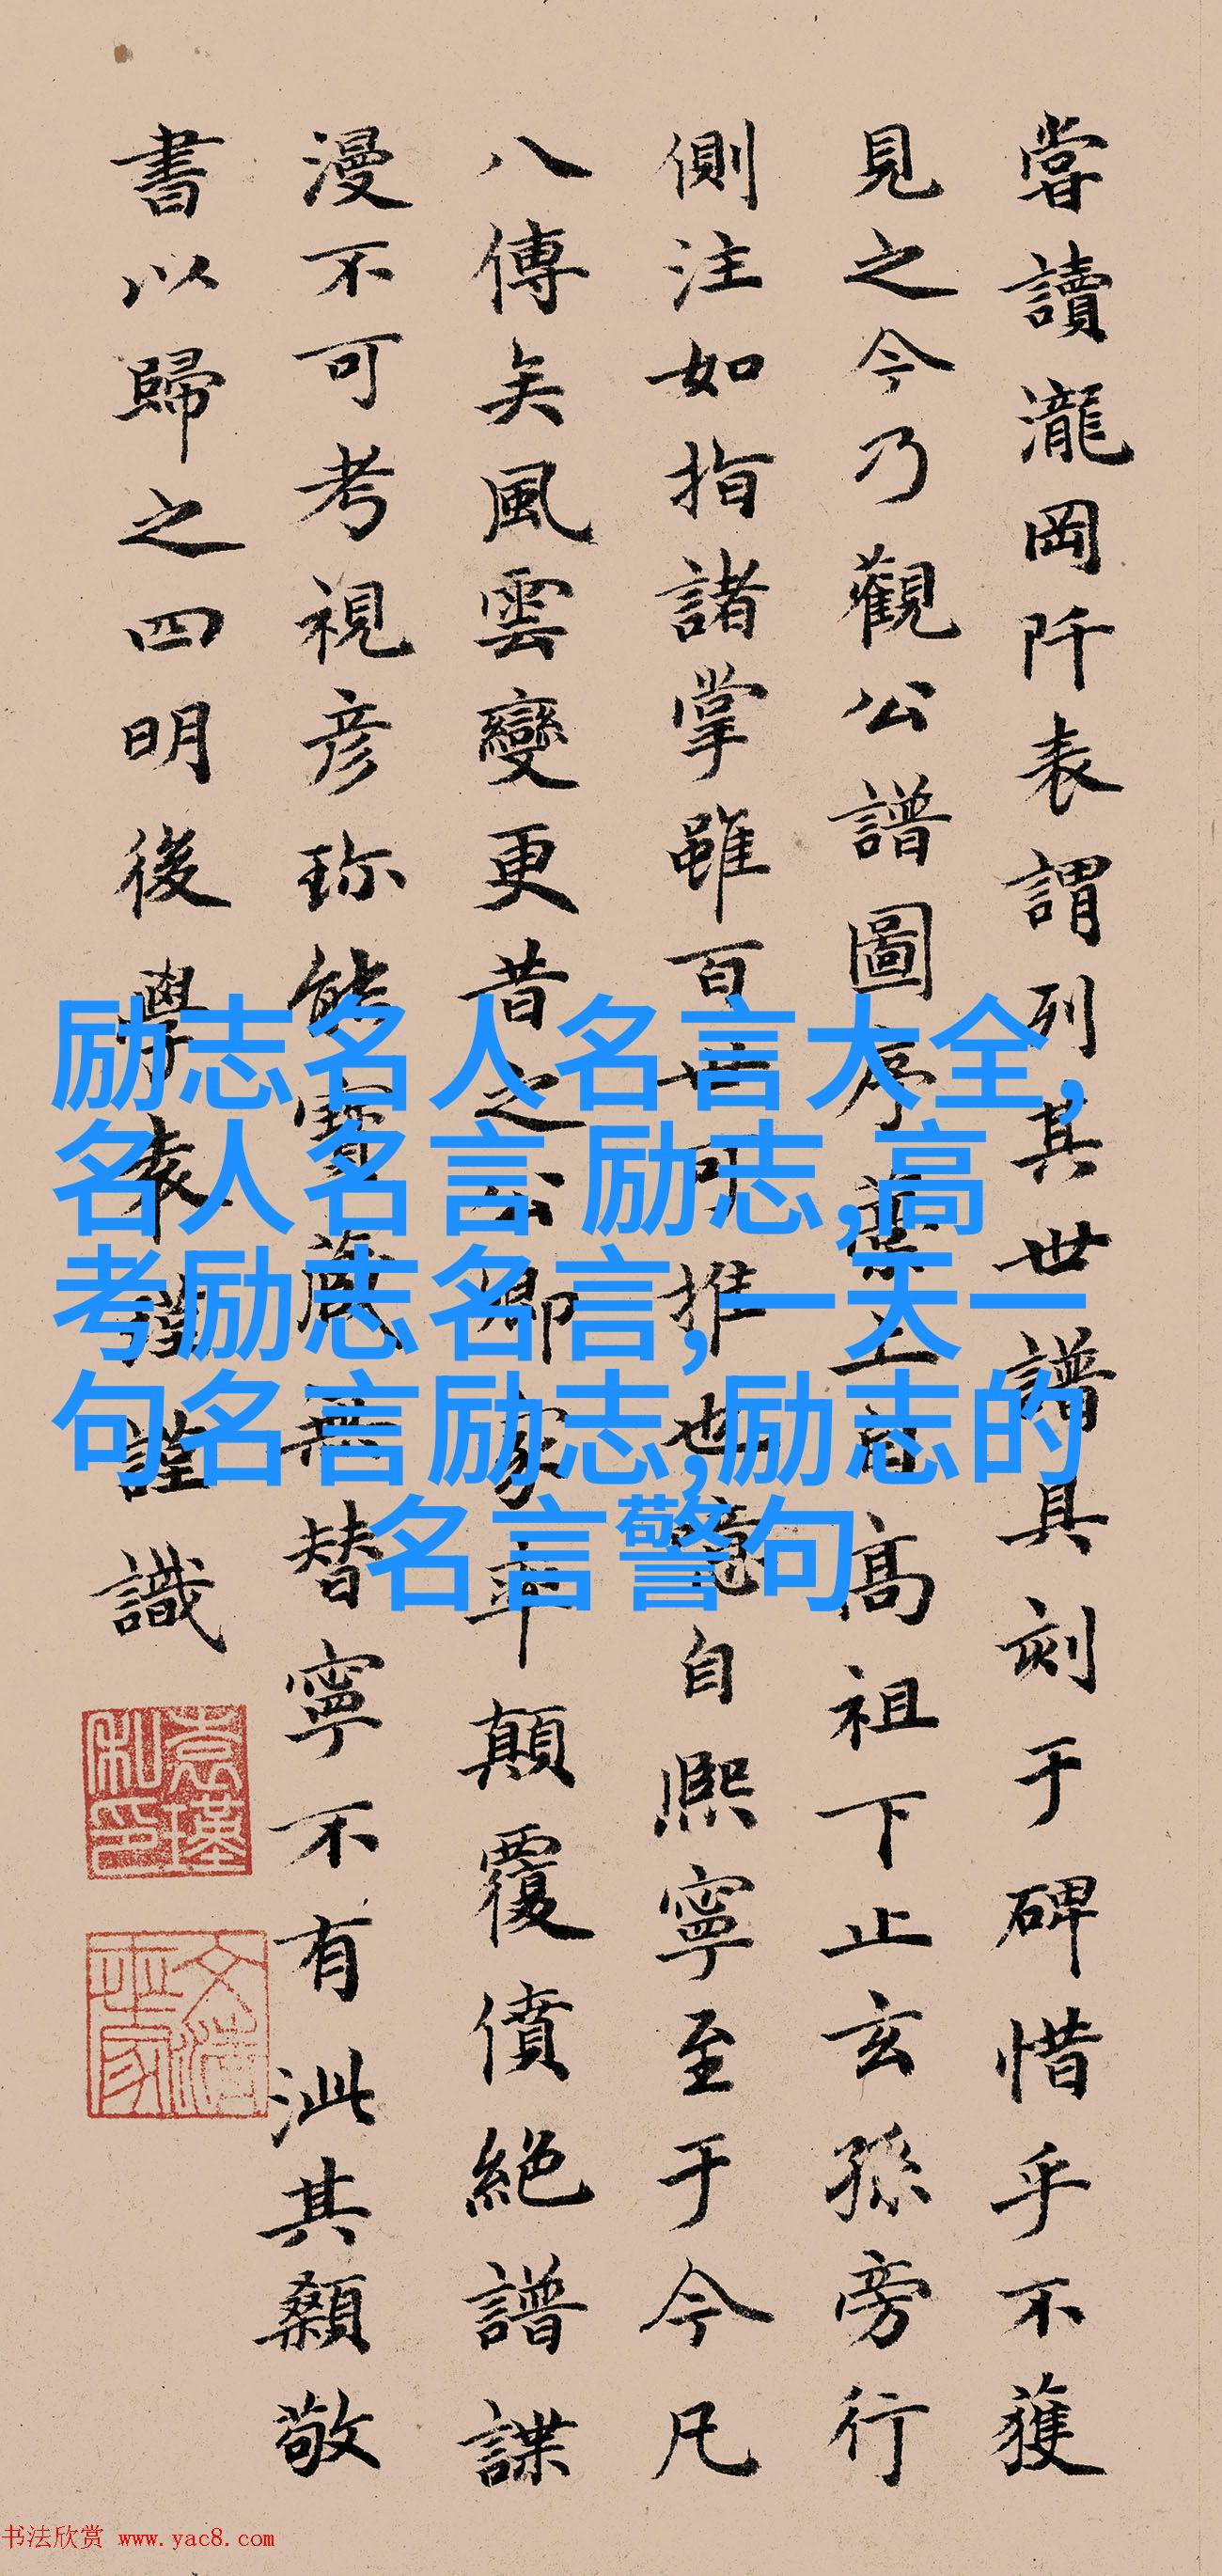 嘗讀瀧岡阡表謂列其世譜具刻于碑惜乎不獲
見之今乃觀公譜圖序 上自高祖下止玄孫旁行
側注如指諸掌雖百世可推也 自熙寧至于今凡
八傳矣風雲變更昔之公卿家 年顛覆僨絕譜諜
漫不可考視彥珎能寶藏無替寧不有泚其顙敬
書以歸之四明後學袁 謹識
励志名人名言大全,
名人名言 励志,高
考励志名言,一天一
句名言励志,励志的
名言警句
书法欣赏 www.yac8.com